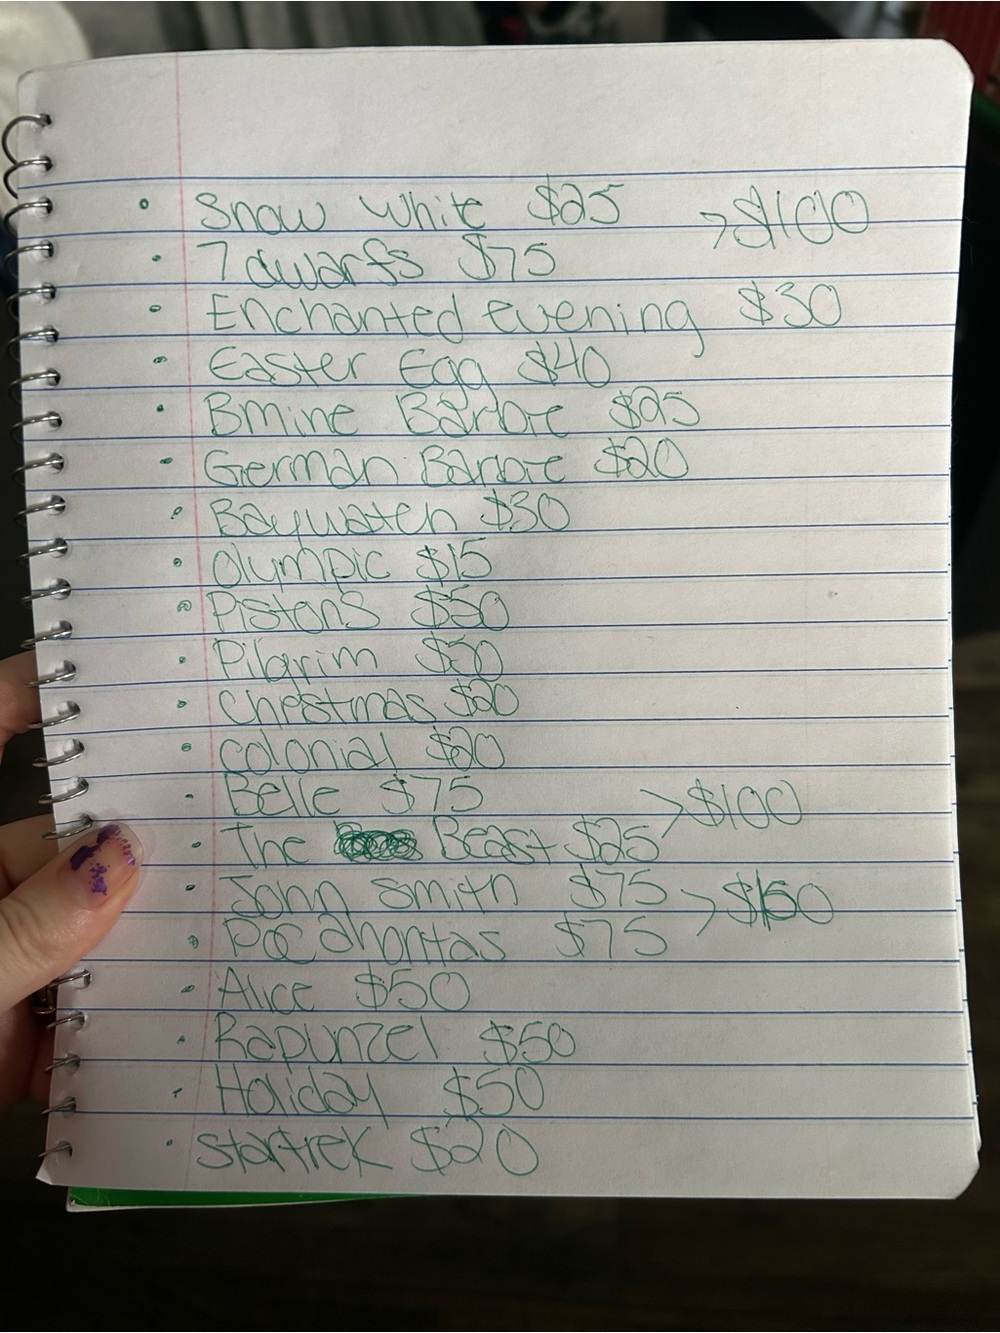 • Snow White $25 >$100
• 7 dwarfs $75
• Enchanted evening $30
• Easter Egg $40
• Bmine Barbie $25
• German Barbie $20
• Baywatch $30
• Olympic $15
• Pistons $50
• Pilgrim $30
• Christmas $20
• colonial $20
• Belle $75 >$100
• The Beast $25
• John Smith $75 >$150
• Pocahontas $75
• Alice $50
• Rapunzel $50
• Holiday $50
• startrek $20